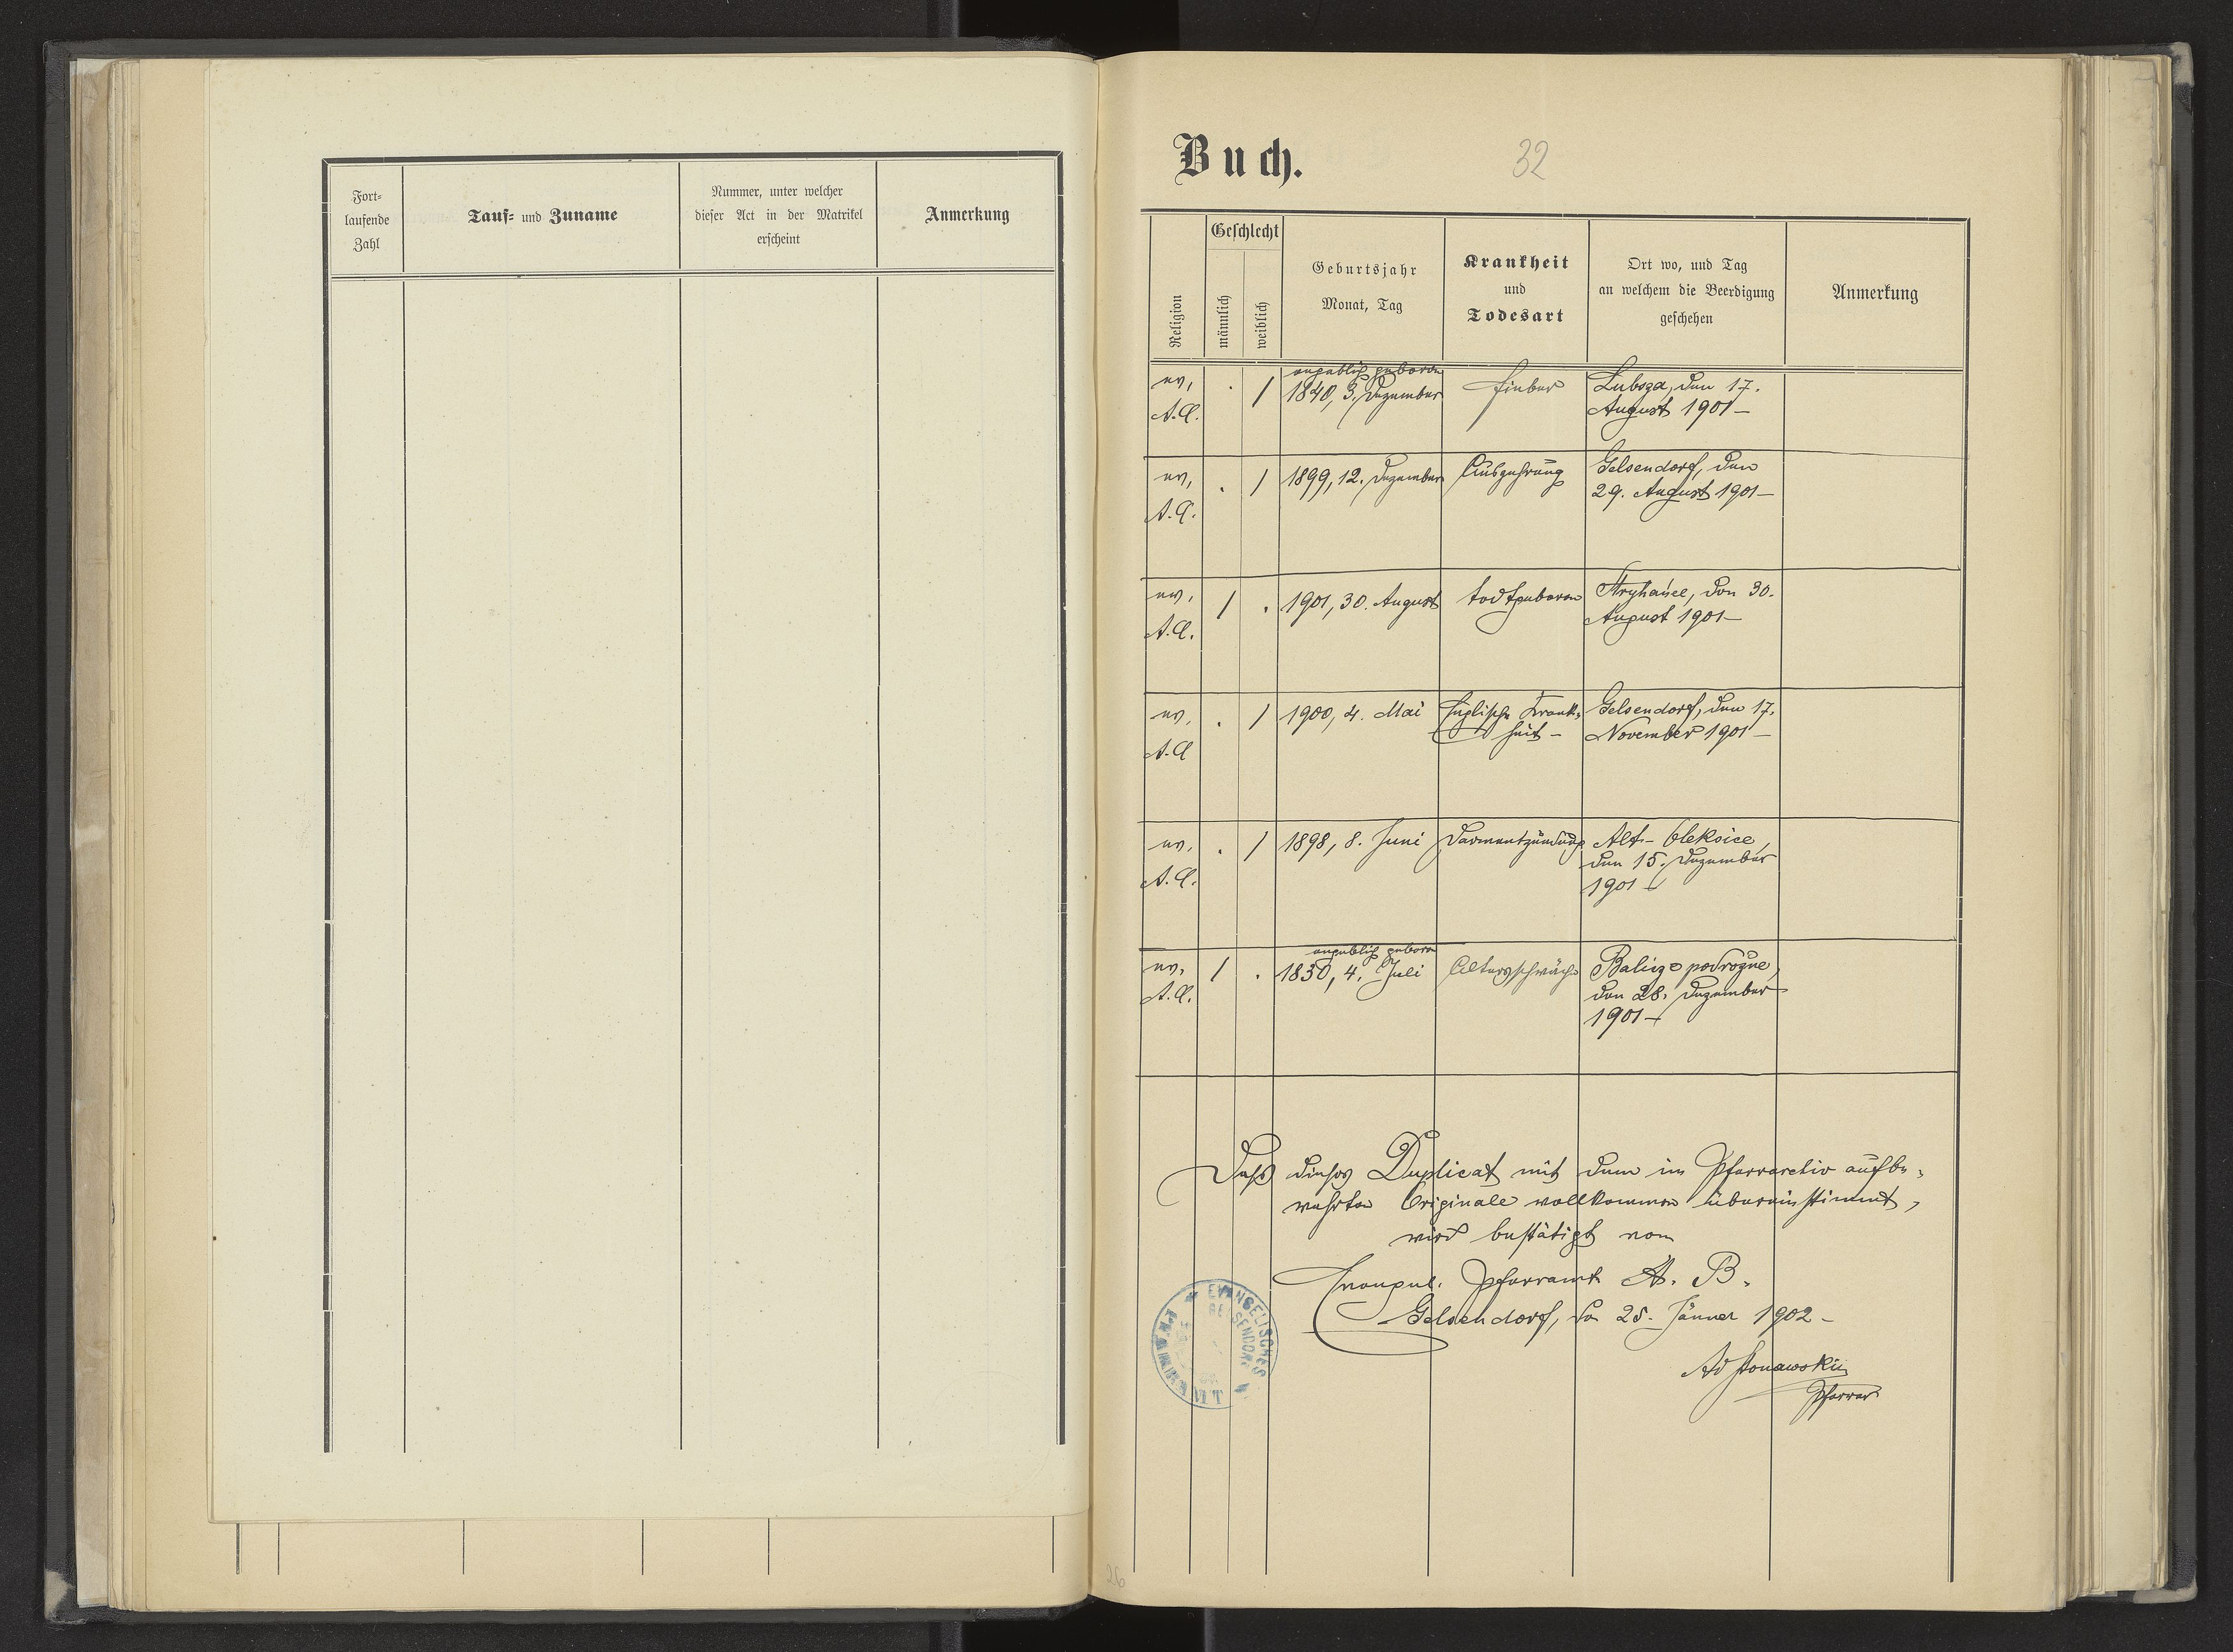 Fort-
laufende
Zahl
Tauf- und Zuname
Nummer, unter welcher
dieser Act in der Matrikel
erscheint
Anmerkung
Buch.
32
Religion
Geschlecht
männlich
weiblich
Geburtsjahr
Monat, Tag
Krankheit
und
Todesart
Ort wo, und Tag
an welchem die Beerdigung
geschehen
Anmerkung
ev.
A.C.
. /
angeblich geboren
1840, 3. Dezember
Fieber
Lubsza, den 17.
August 1901 –
ev.
A.C.
. /
1899, 12. Dezember
Auszehrung
Gelsendorf, den
29. August 1901 –
ev.
A.C.
/ .
1901, 30. August
todtgeboren
Stryhańce, den 30.
August 1901 –
ev.
A.C.
. /
1900, 4. Mai
Englische Krank-
heit –
Gelsendorf, den 17.
November 1901 –
ev.
A.C.
. /
1898, 8. Juni
Darmentzündung
Alt-Oleksice,
den 15. Dezember
1901 –
ev.
A.C.
/ .
angeblich geboren
1830, 4. Juli
Altersschwäche
Balicze podróżne,
den 28. Dezember
1901 –
Dass dieses Duplicat mit dem im Pfarrarchiv aufbe-
wahrten Originale vollkommen übereinstimmt,
wird bestätigt vom
Evangel. Pfarramt A. B.
Gelsendorf, den 25. Jänner 1902 –
Pfarrer
EVANGELISCHES
GELSENDORF
PFARRAMT
26